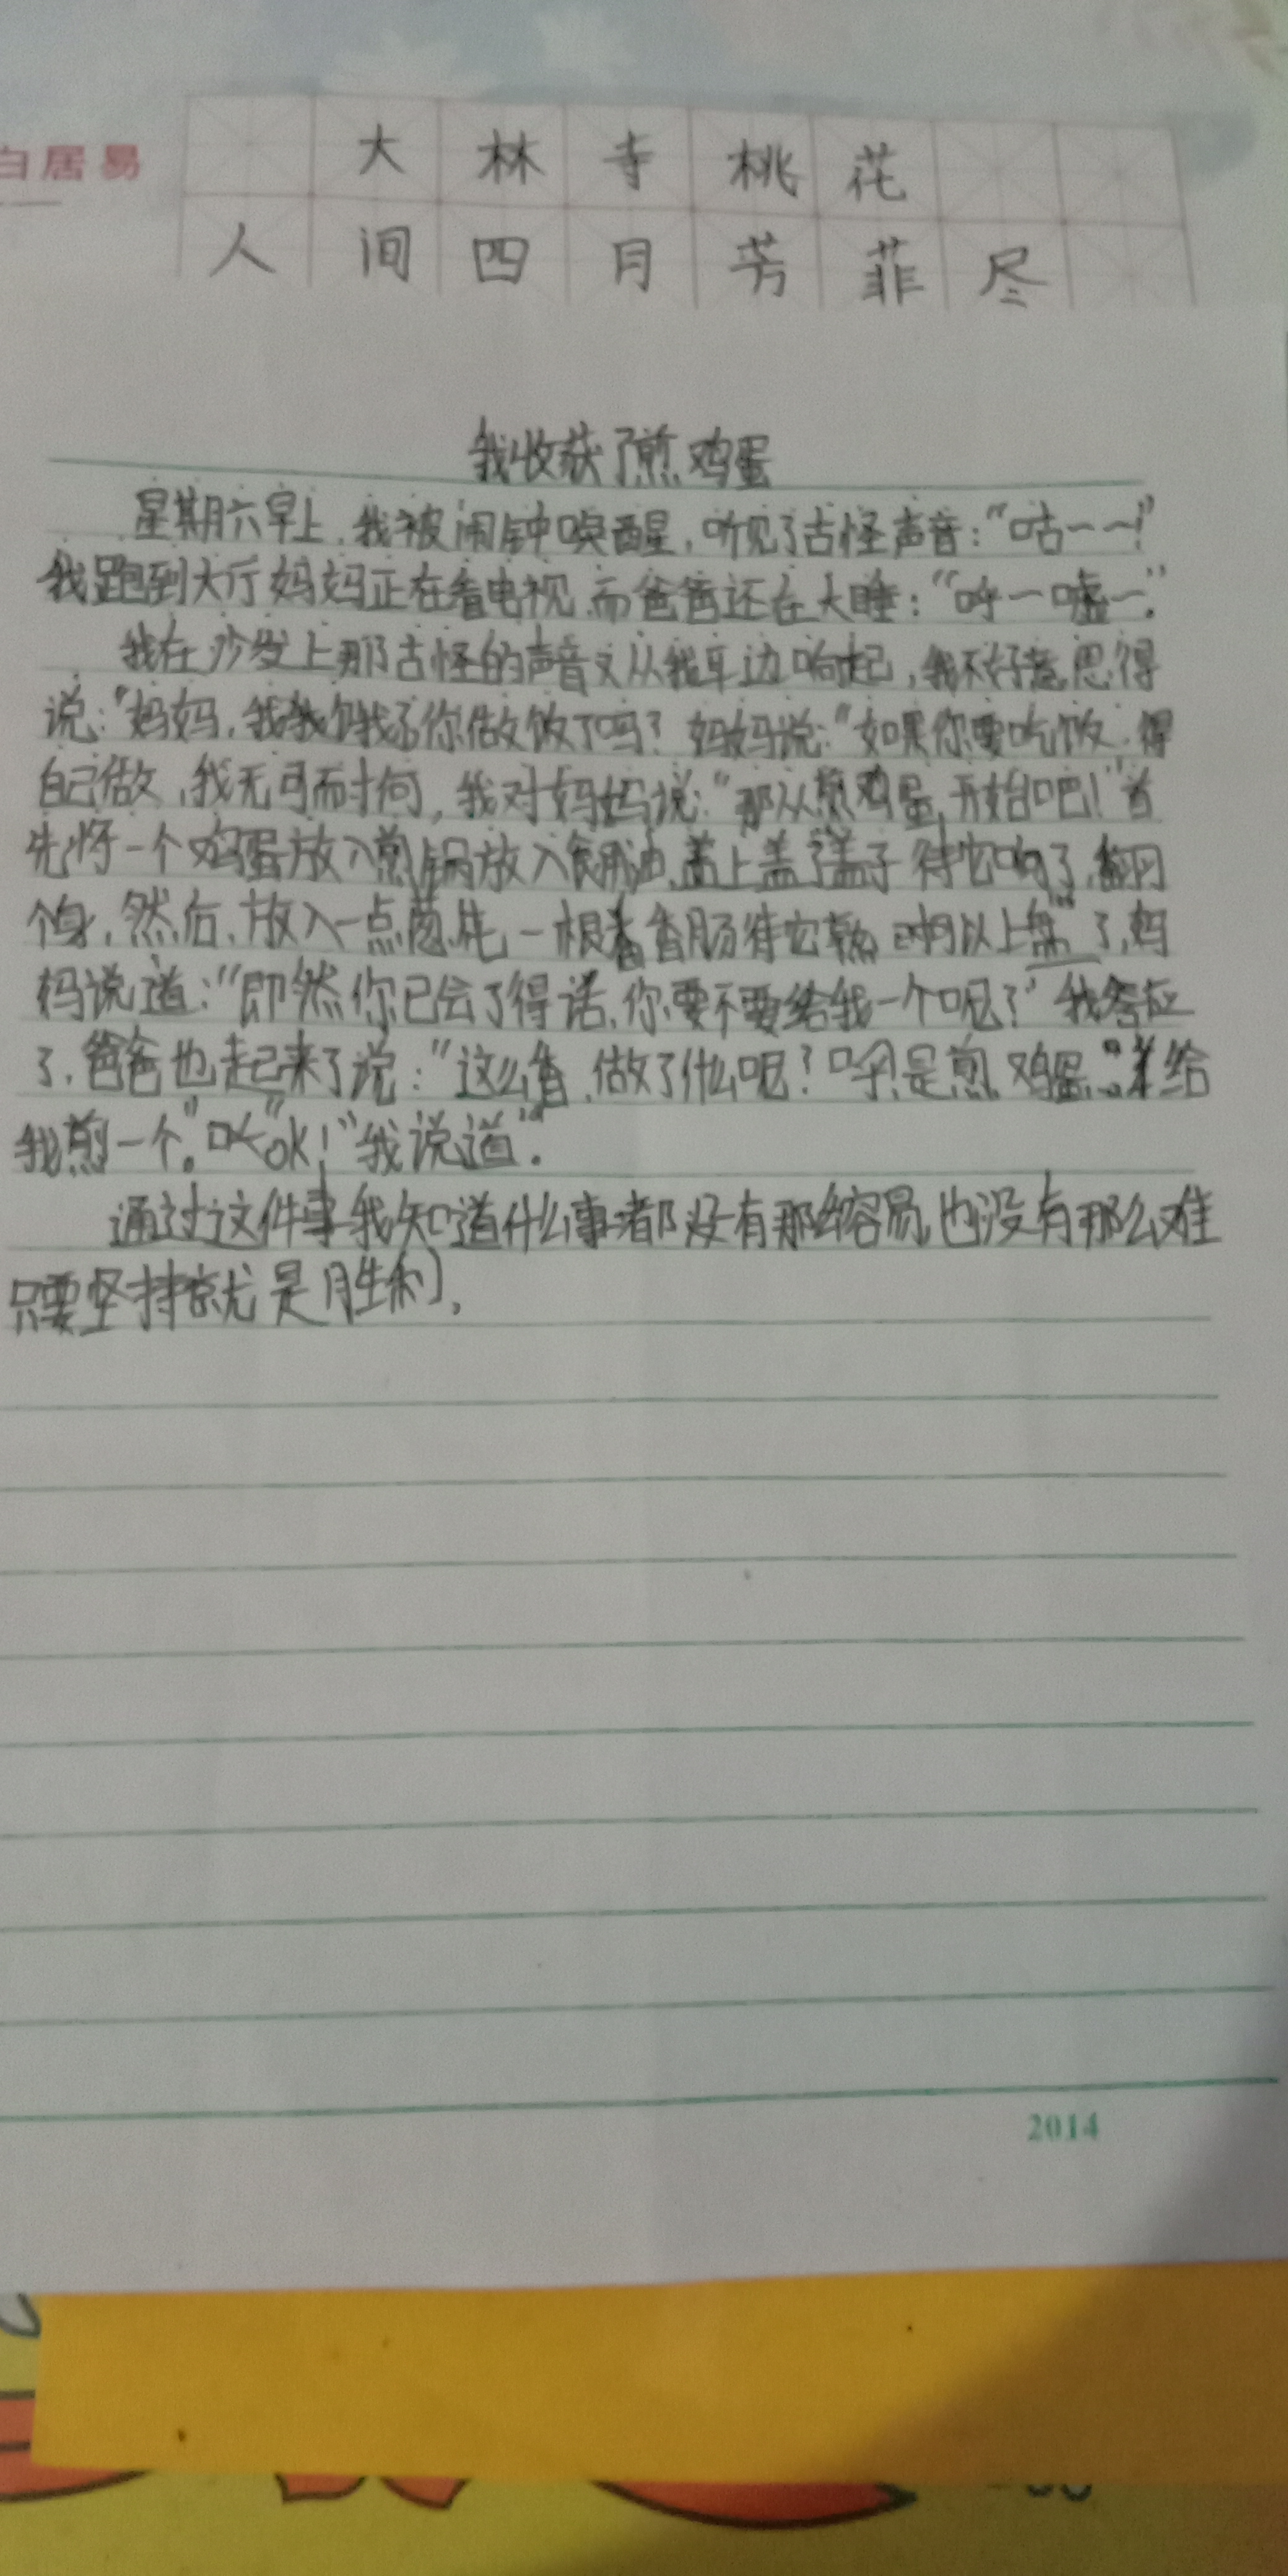 白居易
大林寺桃花
人间四月芳菲尽
我收获了煎鸡蛋
星期六早上,我被闹钟唤醒,听见了古怪声音:“咕一一!”
我跑到大厅妈妈正在看电视,而爸爸还在大睡:“呼一嘘一。”
我在沙发上那古怪的声音又从我耳边响起,我不好意思得
说:“妈妈,我饿了你做饭了吗?妈妈说:“如果你要吃饭,得
自己做,我无可而付何,我对妈妈说:“那从煎鸡蛋开始吧!”首
先将一个鸡蛋放入煎锅放入食用油,盖上盖子待它响了,翻
个身,然后,放入一点葱花,一根香肠待它熟 可以“上盘”了,妈
妈说道:“即然你已会了得话,你要不要给我一个呢?”我答应
了,爸爸也起来了说:“这么香,做了什么呢?是煎鸡蛋 给
我煎一个。”“OK!”我说道”.
通过这件事我知道什么事都没有那么容易,也没有那么难
只要坚持就是胜利,
2014